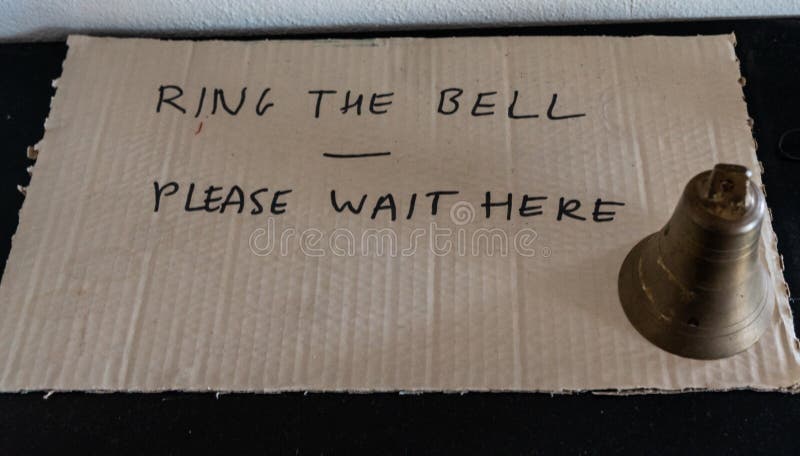 RING THE BELL
—
PLEASE WAIT HERE
dreamstime.com